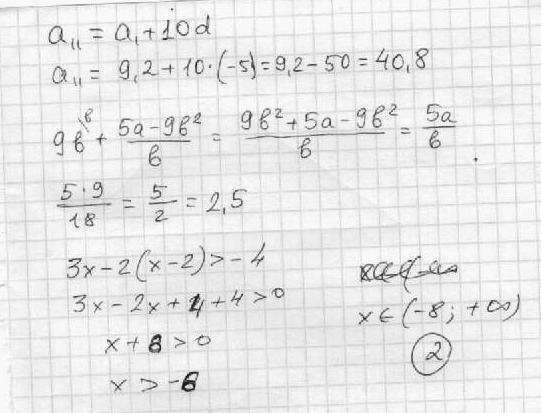 a₁₁ = a₁ + 10d
a₁₁ = 9,2 + 10·(-5) = 9,2 - 50 = 40,8
9b\ᵇ + (5a - 9b²)/b = (9b² + 5a - 9b²)/b = 5a/b .
(5·9)/18 = 5/2 = 2,5
3x - 2(x - 2) > -4
3x - 2x + 4 + 4 > 0
x + 8 > 0
x > -8
x ∈ (-8; +∞)
2